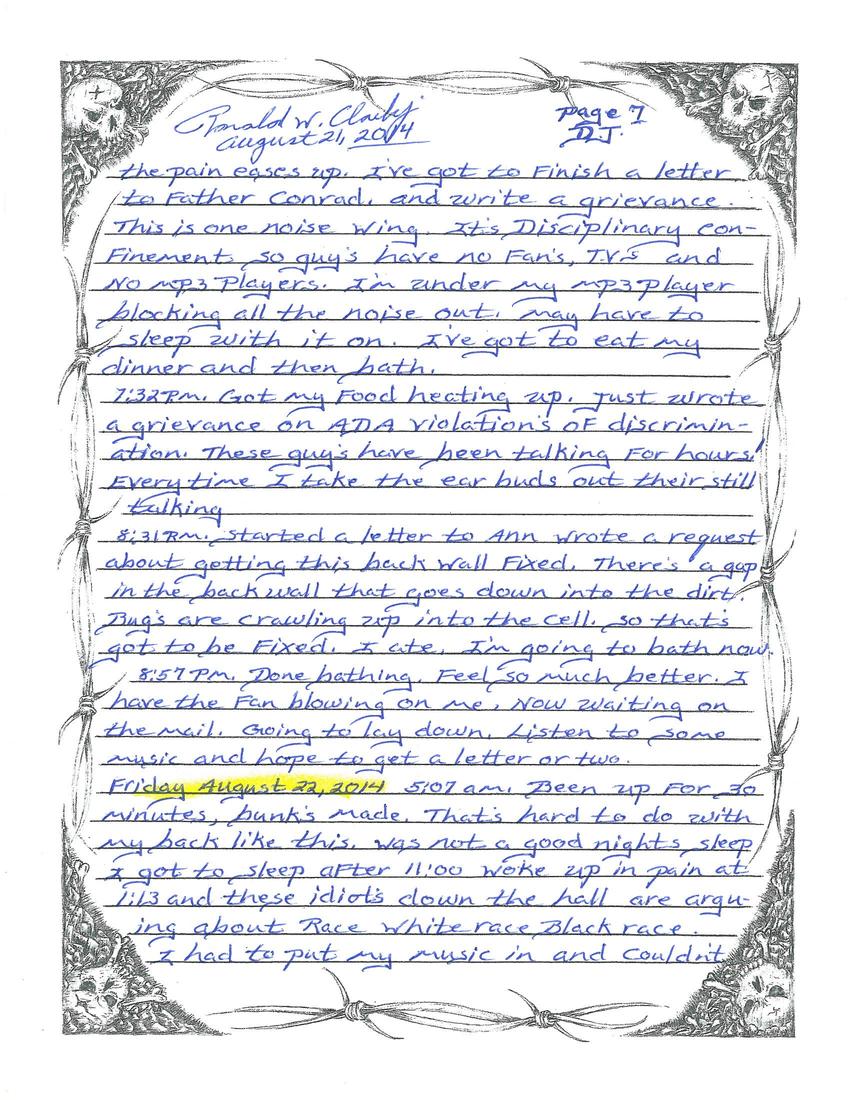 Ronald W. Clark Jr
page 7
August 21, 2014
D.J.
the pain eases up. I've got to Finish a letter
to Father Conrad, and write a grievance.
This is one noise wing. It's Disciplinary con-
Finement, so guy's have no Fan's, T.V.s and
No MP3 Players. I'm under my MP3 Player
blocking all the noise out. May have to
sleep with it on. I've got to eat my
dinner and then bath.
7:32 P.m. Got my Food heating up. Just wrote
a grievance on ADA violation's of discrimin-
ation. These guy's have been talking For hours!
Everytime I take the ear buds out their still
talking
8:31 P.m. Started a letter to Ann wrote a request
about getting this back wall Fixed. There's a gap
in the back wall that goes down into the dirt.
Bug's are crawling up into the cell. So that's
got to be Fixed. I ate, I'm going to bath now.
8:57 Pm. Done bathing. Feel so much better. I
have the Fan blowing on me, Now waiting on
the mail. Going to lay down, Listen to some
music and hope to get a letter or two.
Friday August 22, 2014 5:07 am. Been up For 30
minutes, bunk's made. That's hard to do with
my back like this. Was not a good nights sleep
I got to sleep after 11:00 woke up in pain at
1:13 and these idiots down the hall are argu-
ing about Race White race Black race.
I had to put my music in and couldn't